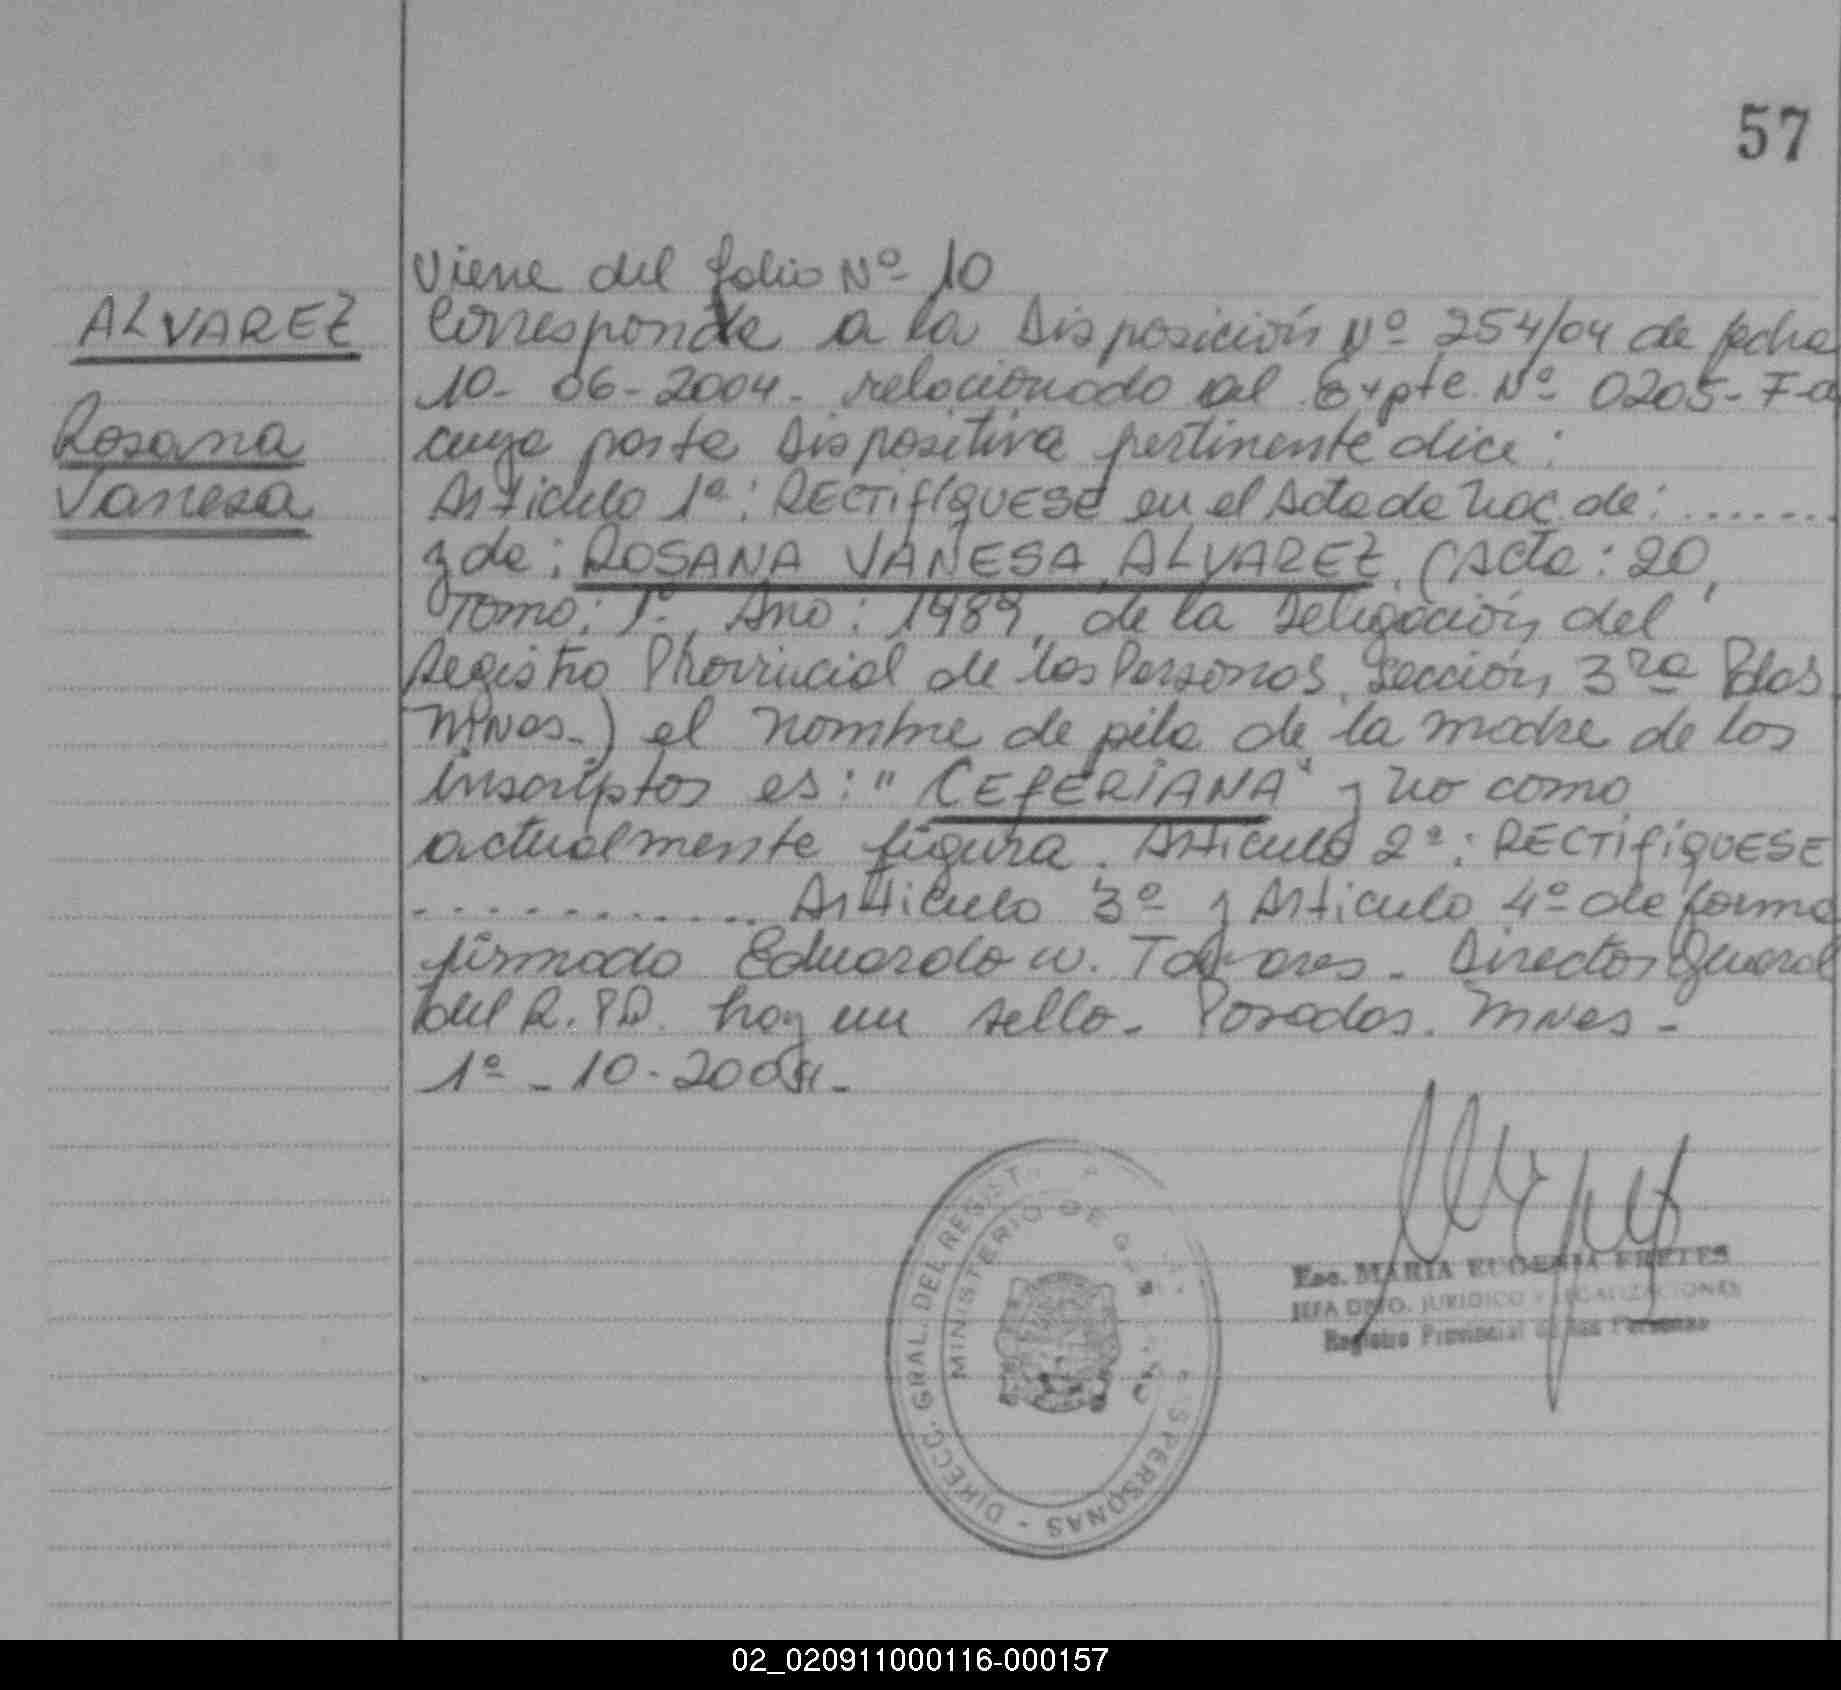 57
Viene del folio Nº 10
ALVAREZ
Rosana
Vanesa
Corresponde a la Disposición Nº 254/04 de fecha
10-06-2004- relacionado al Expte. Nº 0205-F-0
cuya parte Dispositiva pertinente dice:
Articulo 1º: RECTIFÍQUESE en el Acta de Nac. de: .......
y de: ROSANA VANESA ALVAREZ, (Acta: 20,
Tomo: 1º, Año: 1989, de la Delegación del
Registro Provincial de las Personas, Sección 3ra Pdas
MNes.) el nombre de pila de la madre de los
inscriptos es: "CEFERIANA" y no como
actualmente figura. Articulo 2º: RECTIFÍQUESE
............ Articulo 3º y Articulo 4º de forma
firmado Eduardo W. Director General
del R.P.P. hay un sello. Posadas. MNes-
1º-10-2004-
DIRECC. GRAL. DEL REGIST PERSONAS -
MINISTERIO DE
Esc. MARIA EUGENIA FRETES
JEFA DPTO. JURIDICO Y LEGALIZACIONES
Registro Provincial de las Personas
02_020911000116-000157